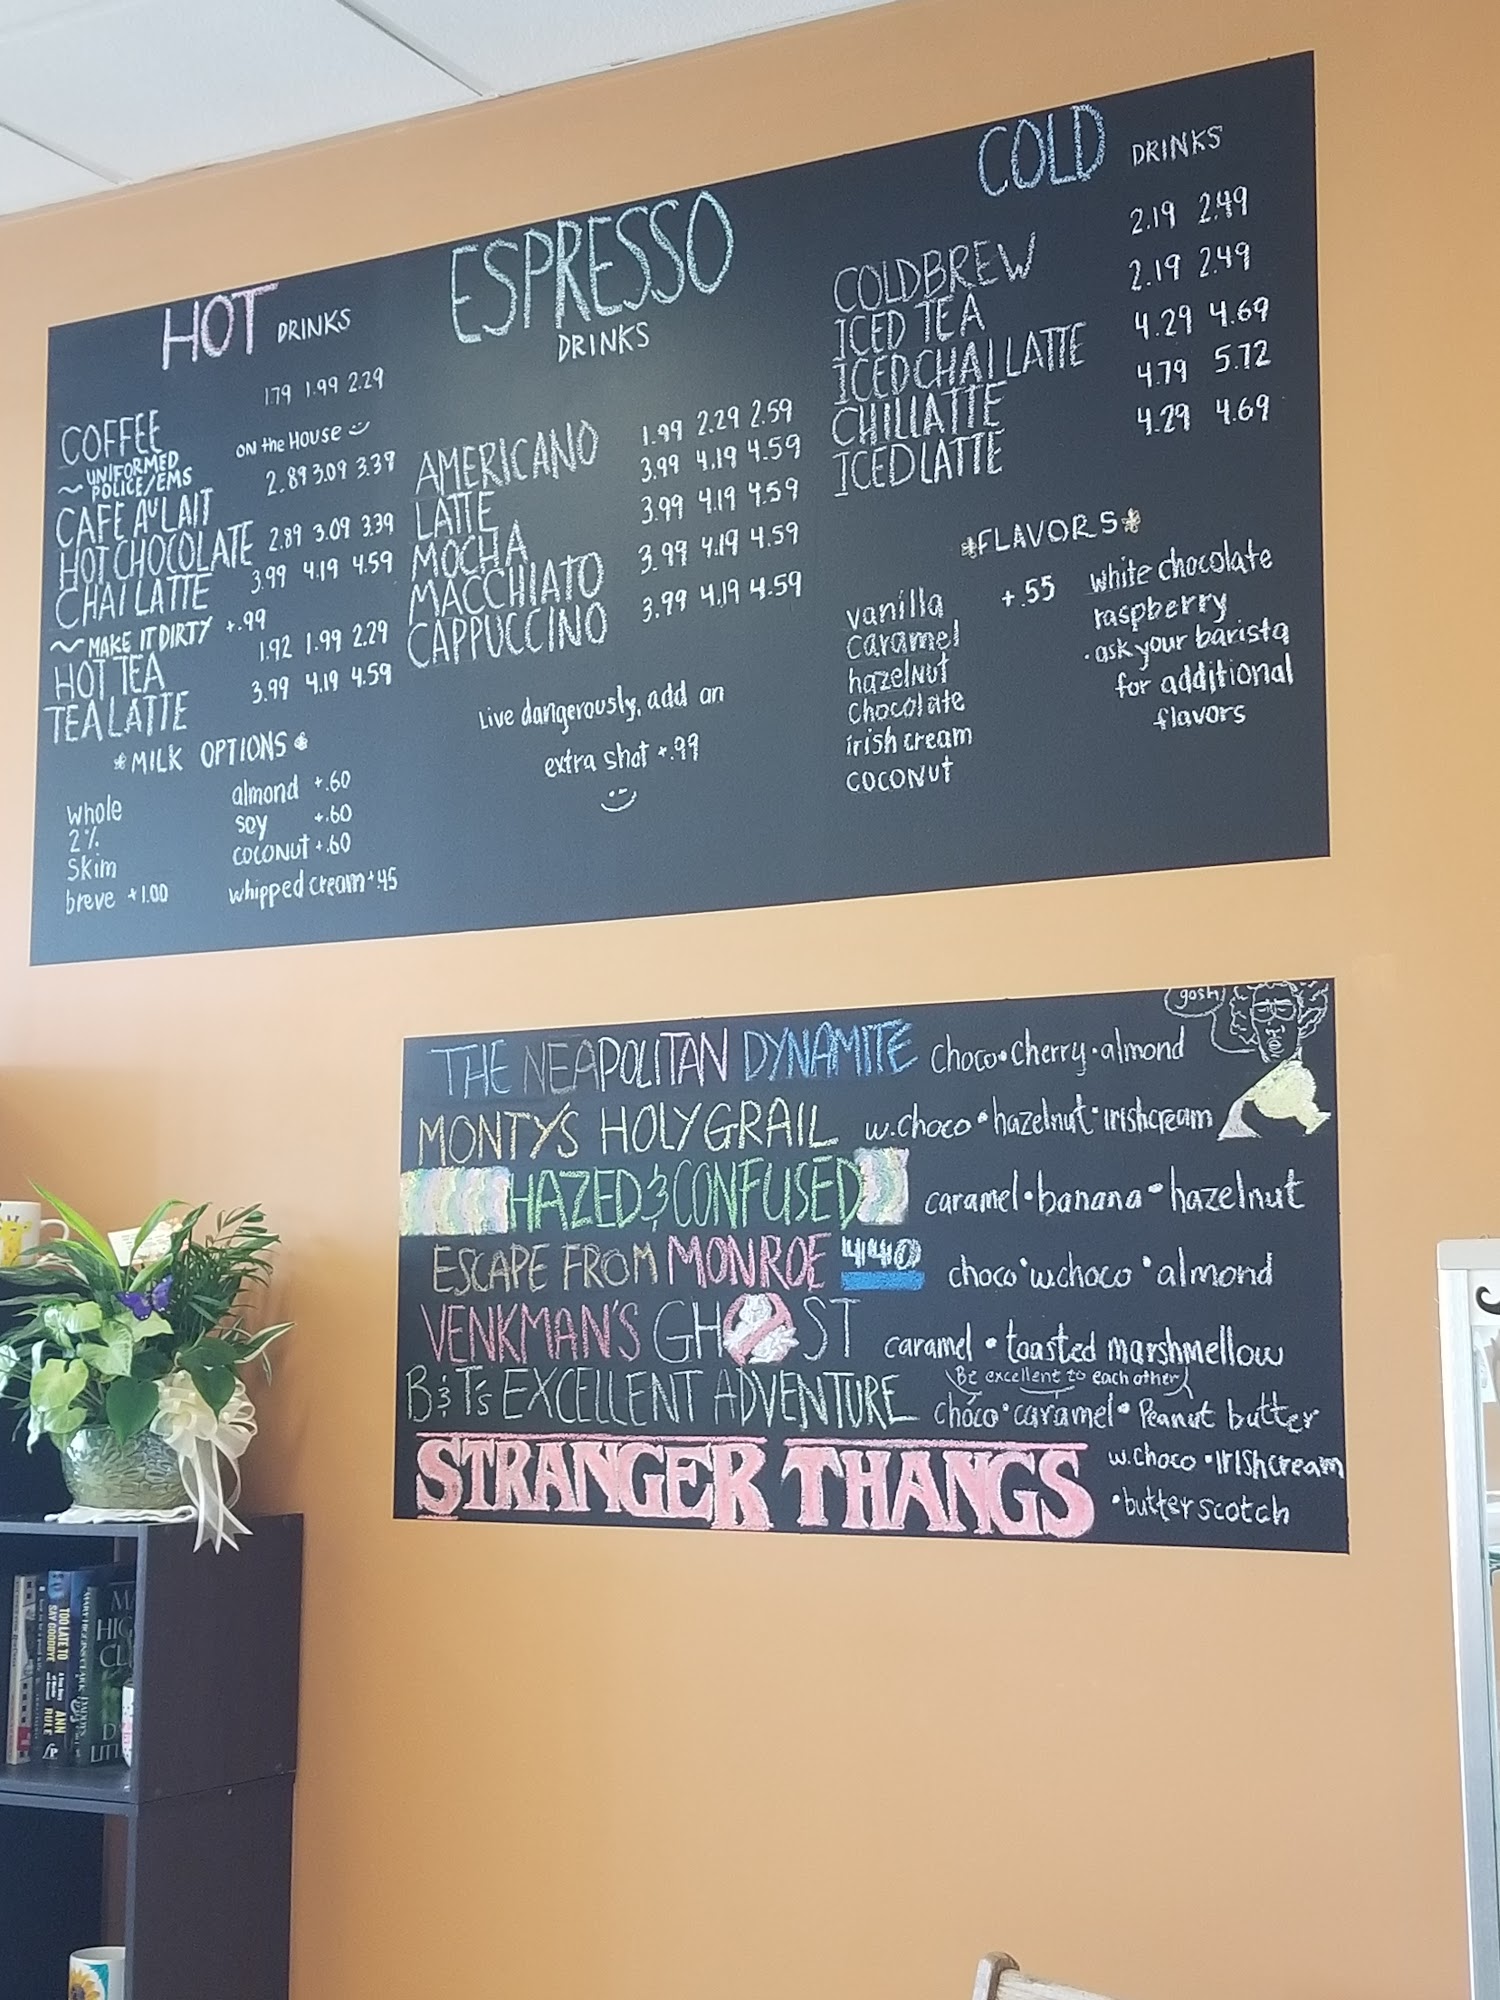 HOT DRINKS
COFFEE 1.79 1.99 2.29
~ UNIFORMED POLICE/EMS ON the HOUSE
CAFE AU LAIT 2.89 3.09 3.39
HOT CHOCOLATE 2.89 3.09 3.39
CHAI LATTE 3.99 4.19 4.59
~ MAKE IT DIRTY +.99
HOT TEA 1.92 1.99 2.29
TEA LATTE 3.99 4.19 4.59
*MILK OPTIONS*
whole
2%
skim
breve +1.00
almond +.60
soy +.60
coconut +.60
whipped cream +.45
ESPRESSO
DRINKS
AMERICANO 1.99 2.29 2.59
LATTE 3.99 4.19 4.59
MOCHA 3.99 4.19 4.59
MACCHIATO 3.99 4.19 4.59
CAPPUCCINO 3.99 4.19 4.59
Live dangerously, add an
extra shot +.99
COLD DRINKS
COLDBREW 2.19 2.49
ICED TEA 2.19 2.49
ICED CHAI LATTE 4.29 4.69
CHILLATTE 4.79 5.72
ICED LATTE 4.29 4.69
*FLAVORS*
+.55
vanilla
caramel
hazelnut
chocolate
irish cream
coconut
white chocolate
raspberry
·ask your barista
for additional
flavors
gosh!
THE NEAPOLITAN DYNAMITE choco•cherry•almond
MONTY'S HOLY GRAIL w.choco•hazelnut•irishcream
HAZED & CONFUSED caramel•banana•hazelnut
ESCAPE FROM MONROE 440 choco•w.choco•almond
VENKMAN'S GHOST caramel•toasted marshmellow
Be excellent to each other
B&T's EXCELLENT ADVENTURE choco•caramel•Peanut butter
STRANGER THANGS w.choco•irishcream
•butterscotch
TOO LATE TO
SAY GOODBYE
ANN
RULE
MARY HIGGINS CLARK